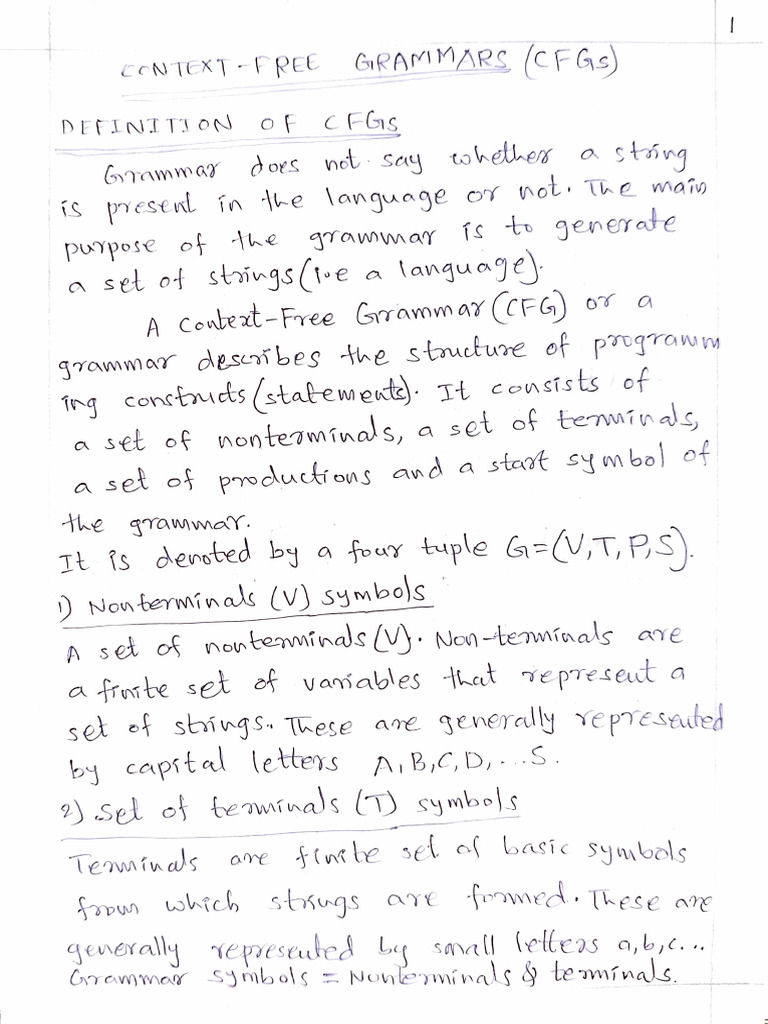 1
CONTEXT-FREE GRAMMARS (CFGs)
DEFINITION OF CFGs
Grammar does not say whether a string
is present in the language or not. The main
purpose of the grammar is to generate
a set of strings (i.e a language).
A Context-Free Grammar (CFG) or a
grammar describes the structure of programm
ing constructs (statements). It consists of
a set of nonterminals, a set of terminals,
a set of productions and a start symbol of
the grammar.
It is denoted by a four tuple G=(V,T,P,S).
1) Nonterminals (V) symbols
A set of nonterminals (V). Non-terminals are
a finite set of variables that represent a
set of strings. These are generally represented
by capital letters A,B,C,D,...S.
2) Set of terminals (T) symbols
Terminals are finite set of basic symbols
from which strings are formed. These are
generally represented by small letters a,b,c...
Grammar symbols = Nonterminals & terminals.